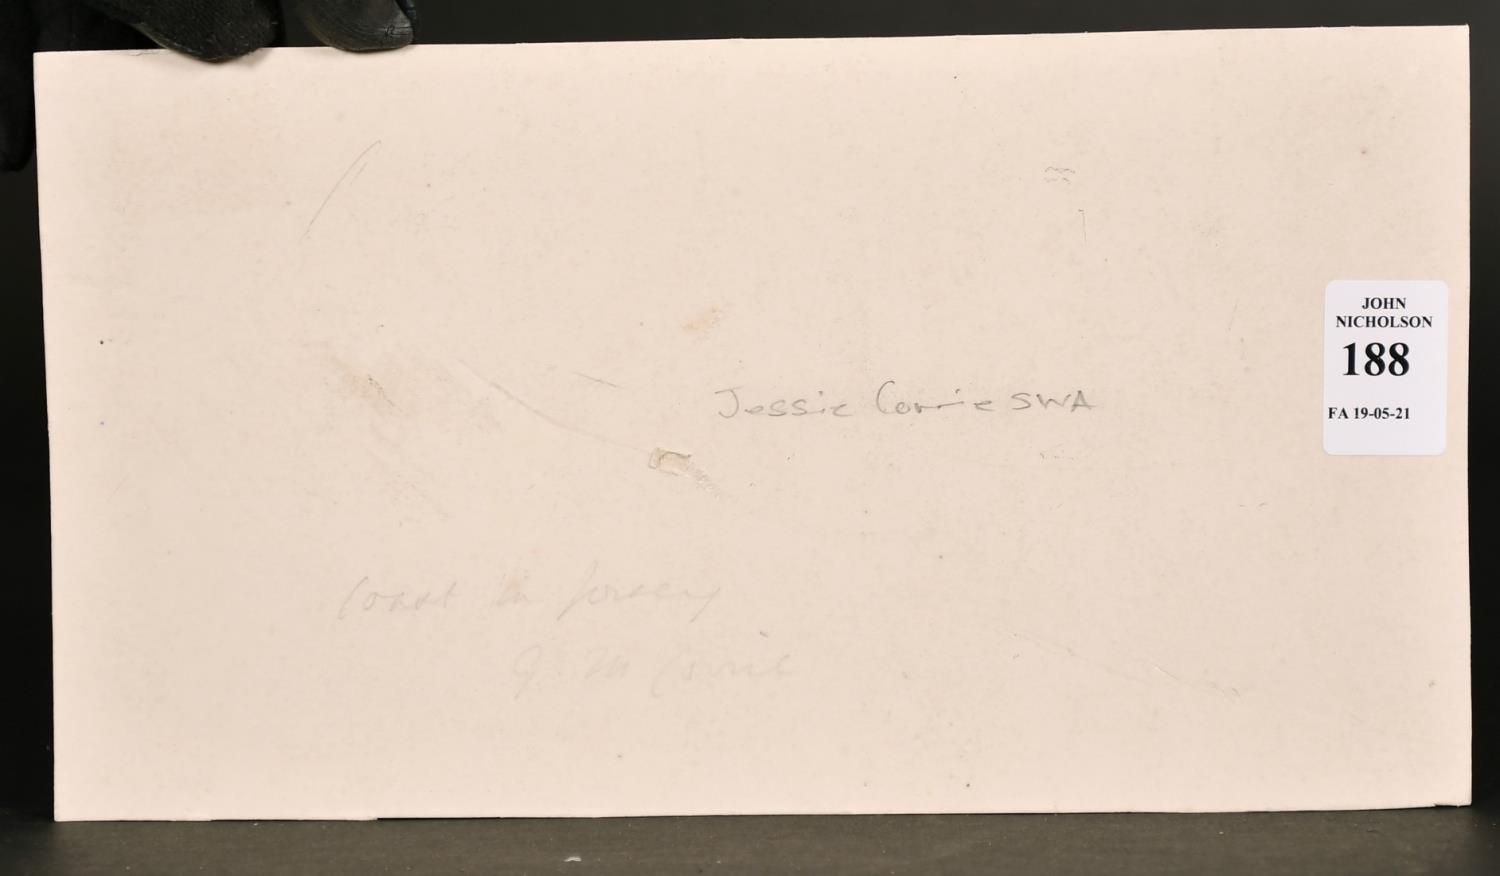 JOHN
NICHOLSON
188
FA 19-05-21
Jessie Corrie SWA
Coast in Jersey
J. M Corrie